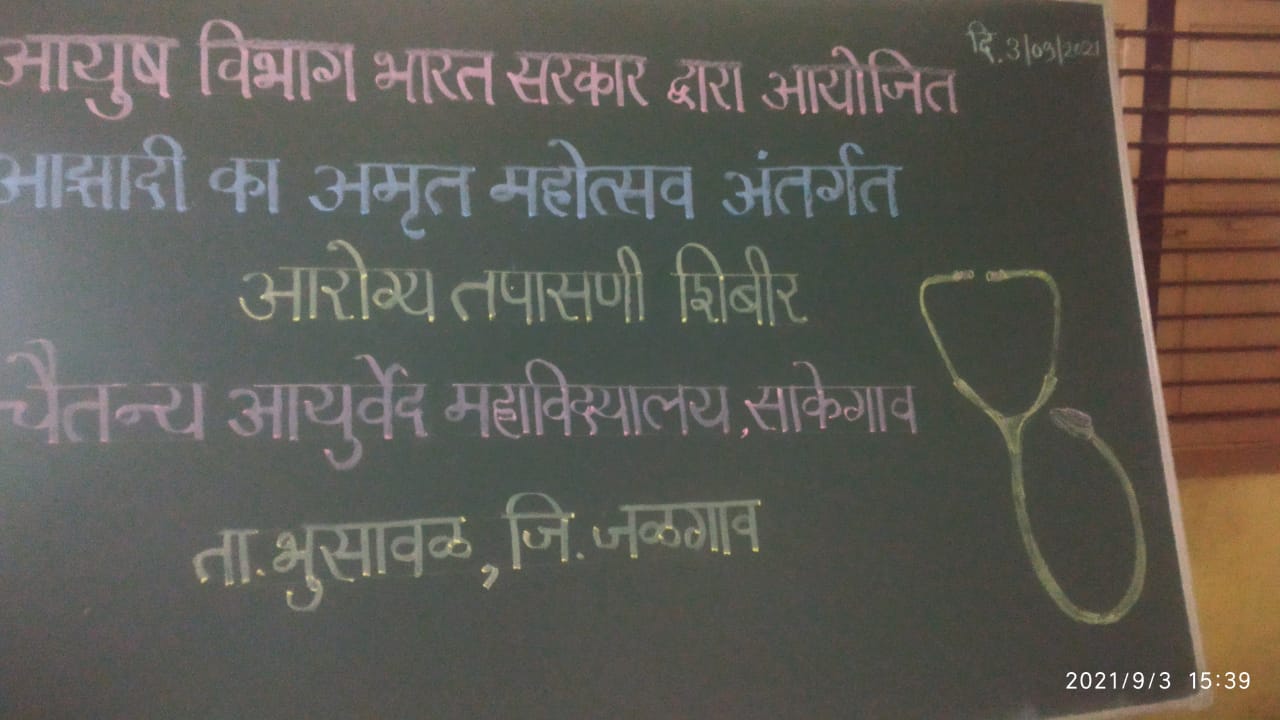 आयुष विभाग भारत सरकार द्वारा आयोजित
दि. 3/09/2021
आझादी का अमृत महोत्सव अंतर्गत
आरोग्य तपासणी शिबीर
चैतन्य आयुर्वेद महाविद्यालय, साकेगाव
ता. भुसावळ, जि. जळगाव
2021/9/3 15:39